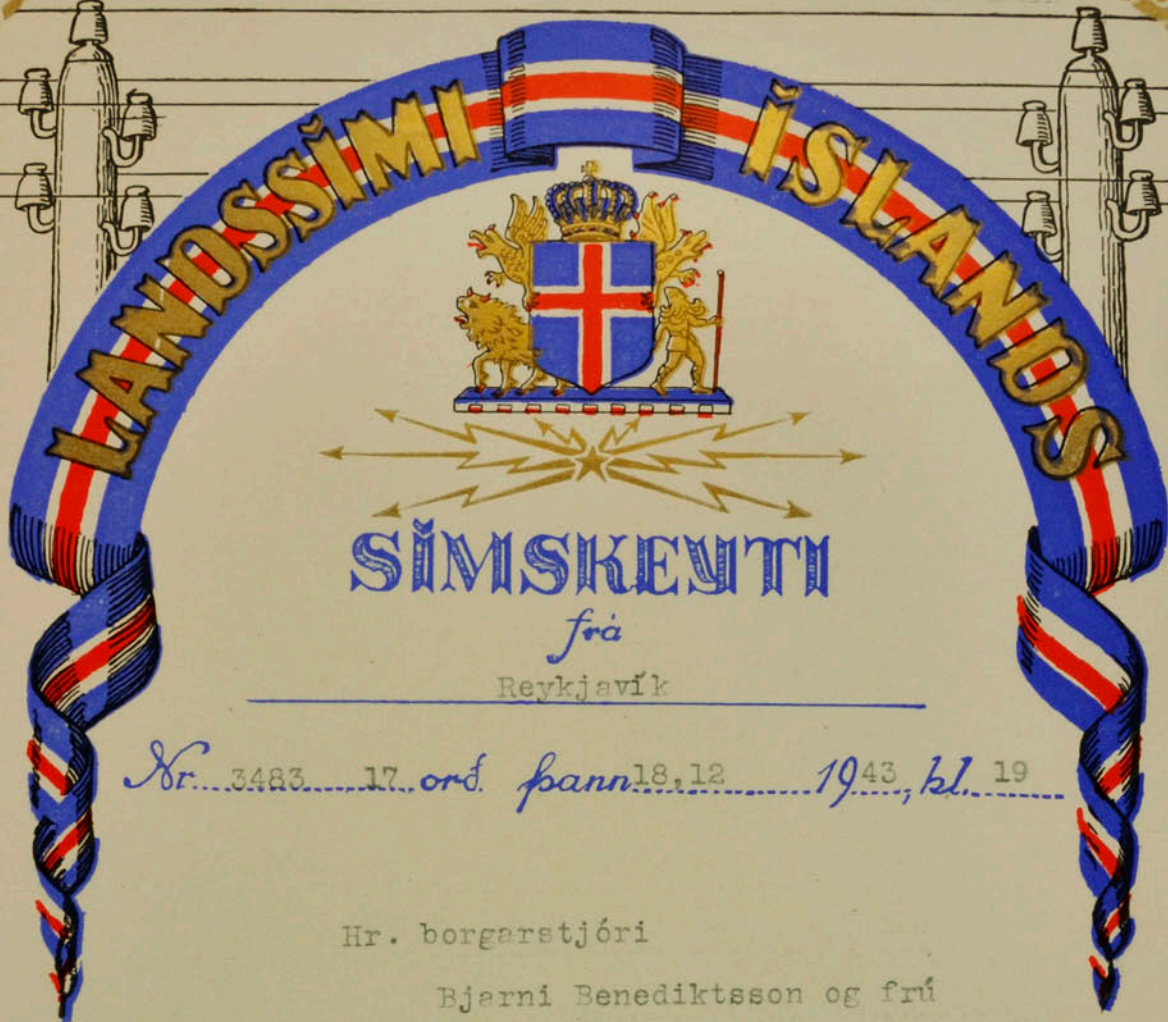 LANDSSÍMI ÍSLANDS
SÍMSKEYTI
frá
Reykjavík
Nr. 3483 17 orð. þann 18,12 1943, kl. 19
Hr. borgarstjóri
Bjarni Benediktsson og frú